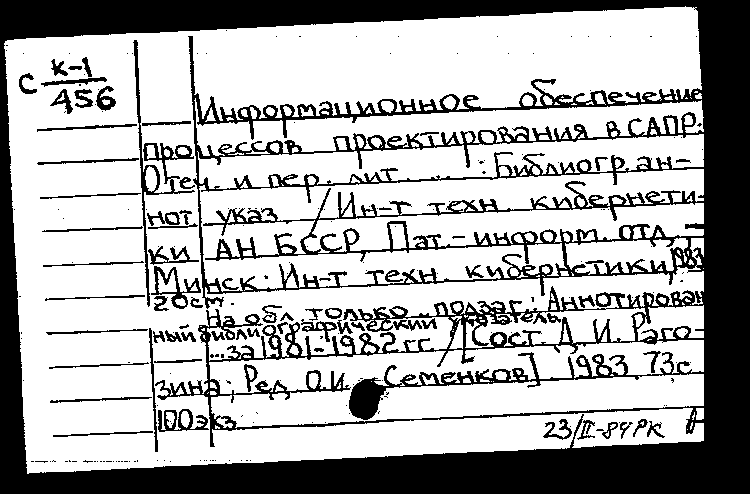 С К-1
456
Информационное обеспечение
процессов проектирования в САПР:
Отеч. и пер. лит. ... : Библиогр. ан-
нот. указ. / Ин-т техн. кибернети-
ки АН БССР, Пат.-информ. отд. –
Минск: Ин-т техн. кибернетики, 1983
20 см.
На обл. только подзаг.: Аннотирован
ный библиографический указатель
... за 1981-1982 гг. / [Сост. Д. И. Раго-
зина; Ред. О.И. Семенков]. 1983. 73 с
100 экз
23/II-84 РК